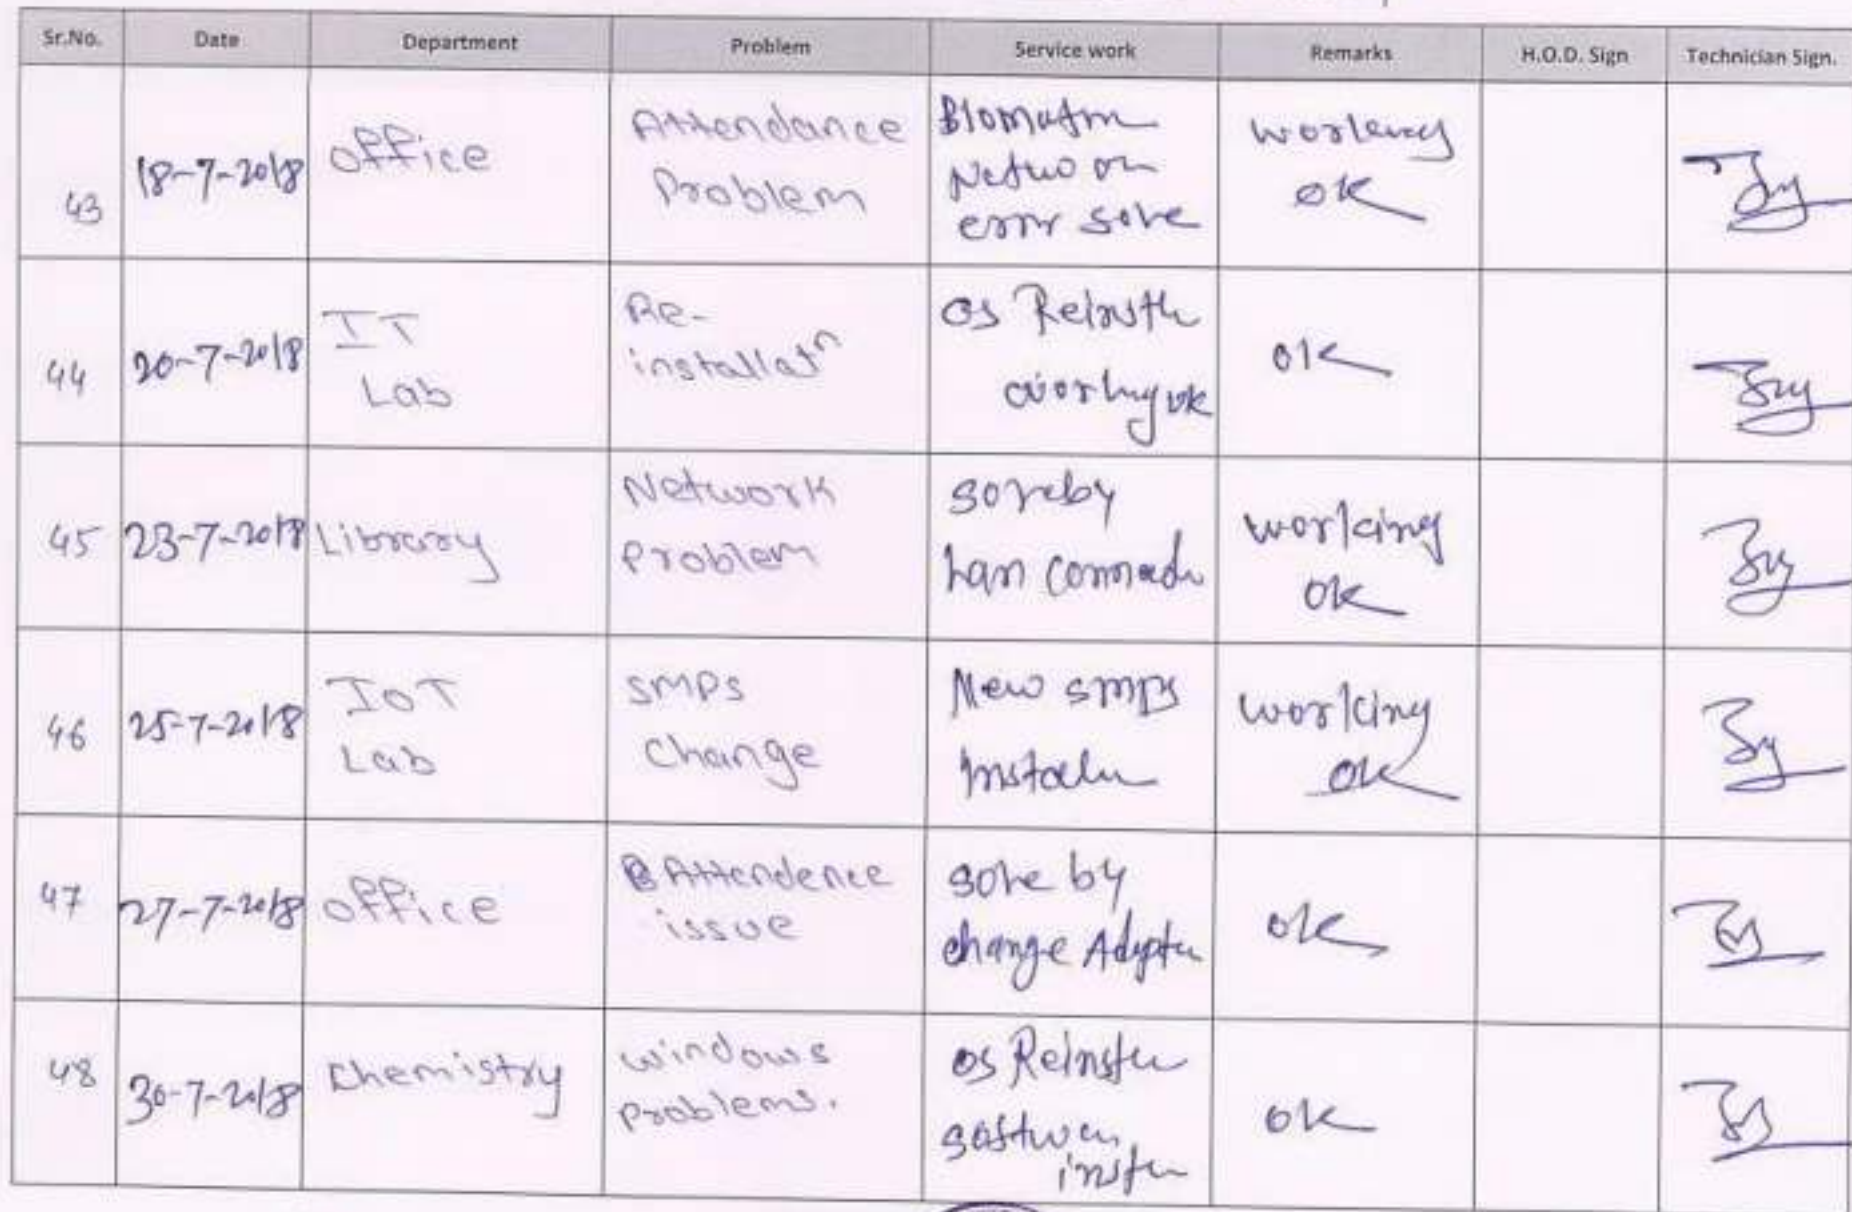 Sr.No. Date Department Problem Service work Remarks H.O.D. Sign Technician Sign.
43 18-7-2018 office Attendance Problem error solve working ok
44 20-7-2018 IT Lab Re-installatⁿ os working ok ok
45 23-7-2018 Library Network problem solve by Lan working ok
46 25-7-2018 IoT Lab SMPS Change New smps working ok
47 27-7-2018 office Attendence issue solve by change ok
48 30-7-2018 Chemistry windows problems. os ok